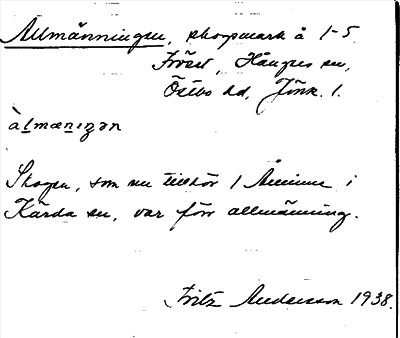 Allmänningen, skogsmark å 1-5
Fröset, Hånger sn,
Östbo hd, Jönk. l.
àlmæniŋən
Skogen, som nu tillhör 1 Åminne i
Kärda sn, var förr allmänning.
Fritz Andersson 1938.